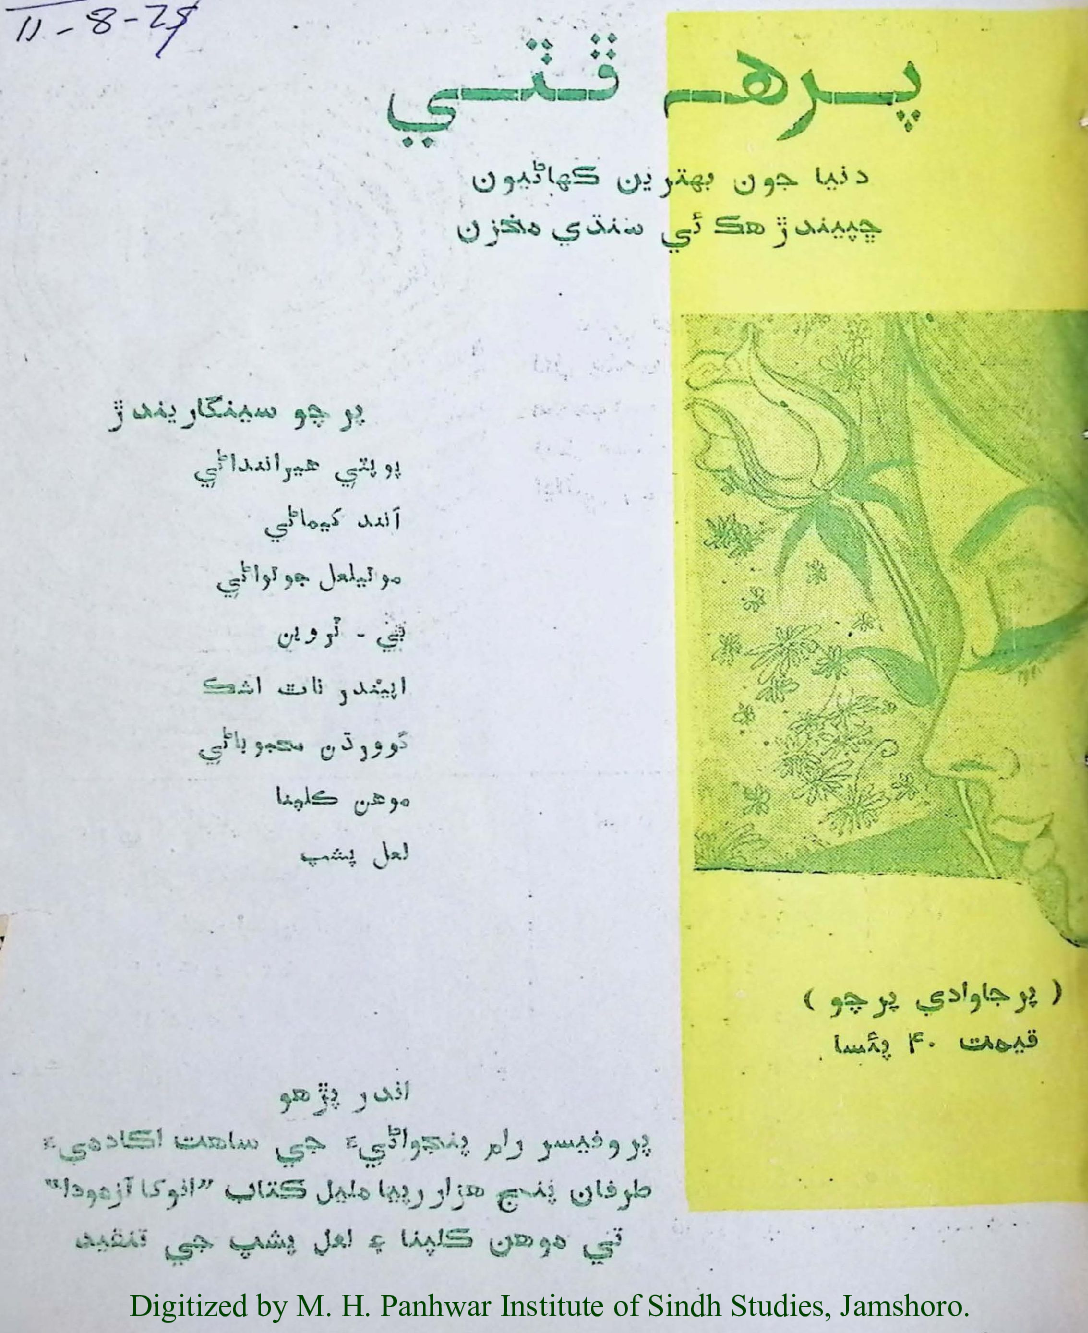 11-8-25
پرھ ڦٽي
دنيا جون بهترين ڪهاڻيون
ڇپيندڙ هڪ ئي سنڌي مخزن
پرچو سينگاريندڙ
پوپٽي هيرانندداڻي
آنند کيماڻي
موتيلعل جوتواڻي
ٽي - ٽروين
اپيندر ناٿ اشڪ
گوورڌن محبوباڻي
موهن ڪلپنا
لعل پشپ
( پرجاوادي پرچو )
قيمت ۴۰ پئسا
اندر پڙهو
پروفيسر رام پنجواڻيءَ جي ساهت اڪادميءَ
طرفان پنج هزار رپيا مليل ڪتاب ”انوکا آزمودا“
تي موهن ڪلپنا ۽ لعل پشپ جي تنقيد
Digitized by M. H. Panhwar Institute of Sindh Studies, Jamshoro.